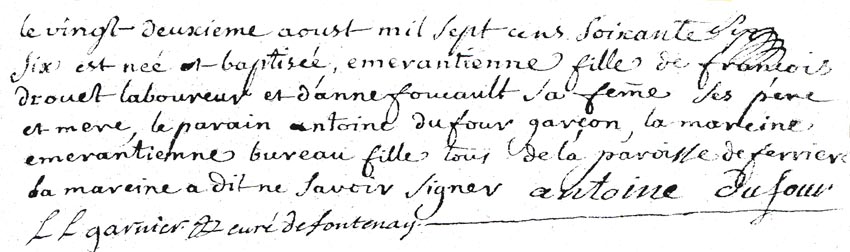 le vingt deuxieme aoust mil sept cens soixante six
six est neé et baptisée, emerantienne fille de francois
drouet laboureur et d'anne foucault sa feme ses pere
et mere, le parain antoine dufour garçon, la mareine
emerantienne bureau fille tous de la paroisse de ferriere
la mareine a dit ne savoir signer antoine dufour
L L garnier curé de fontenay